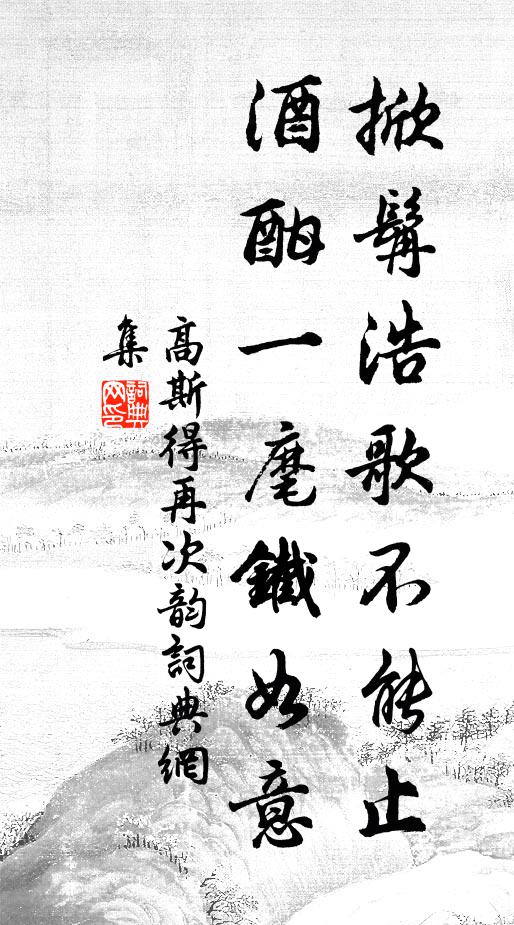 掀髯浩歌不能止
酒酣一麾鐵如意
高斯得再次韵詞典網
集
詞典網印